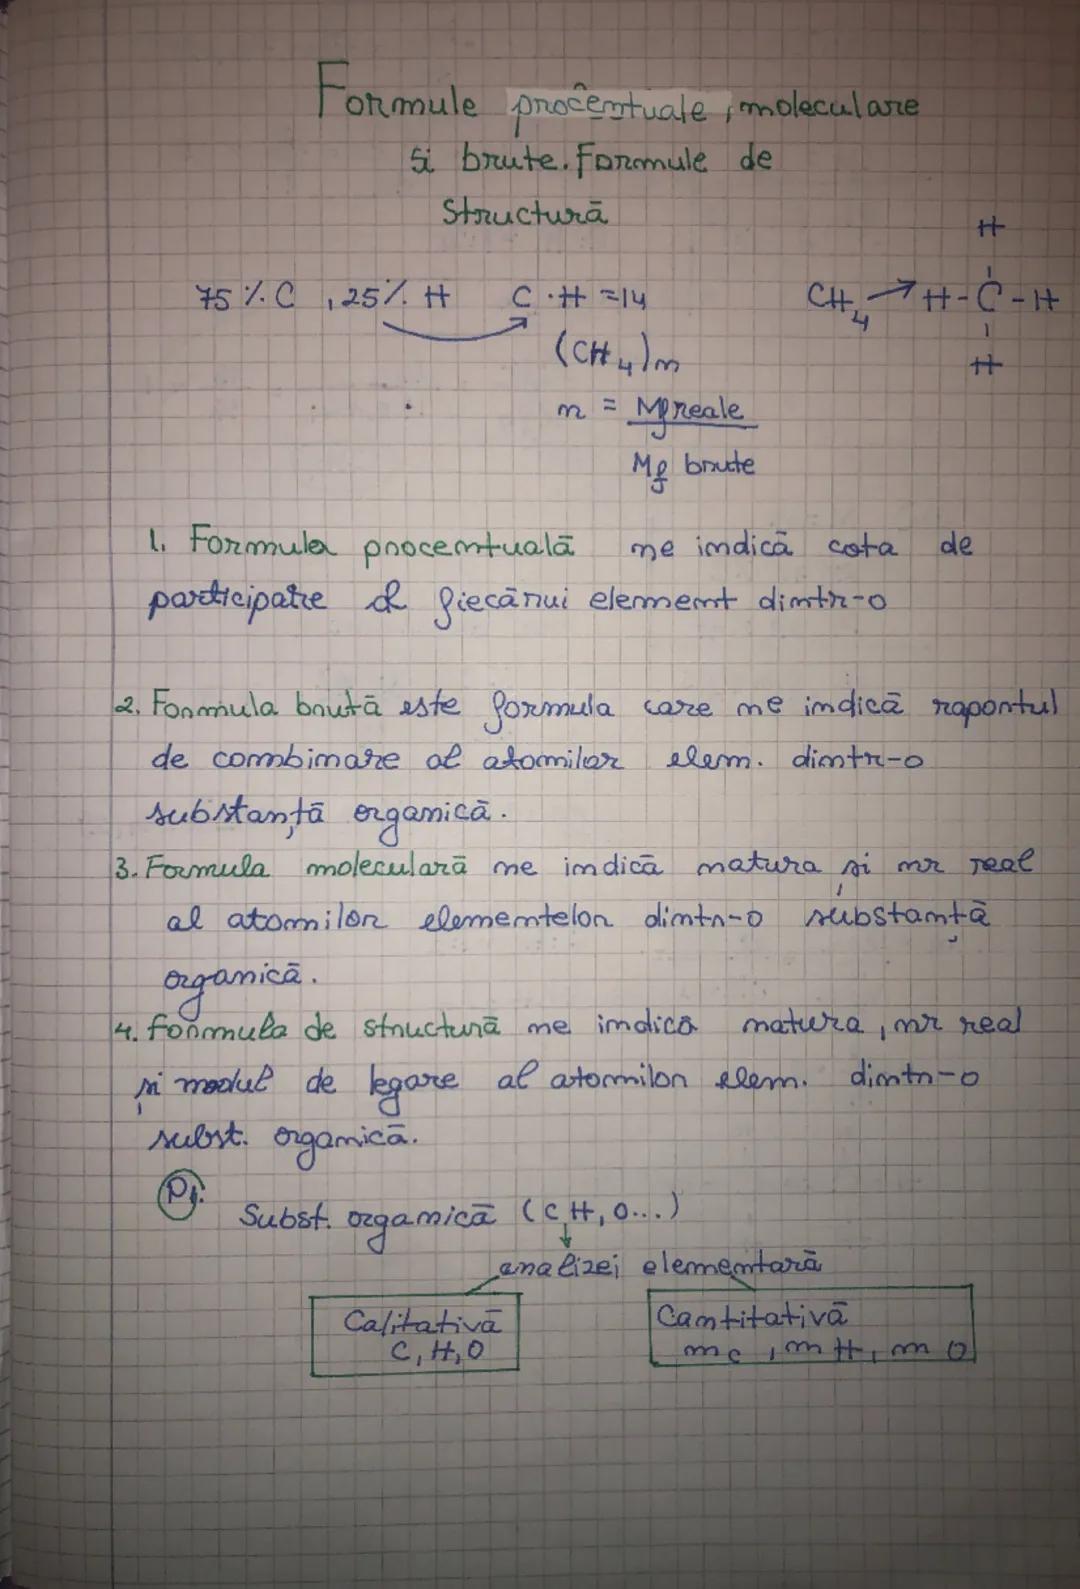 Formule procentuale, moleculare
si brute. Formule de
Structură
75 % C , 25 % H C · H = 14
(CH₄)n
n = Mf reale
Mf brute
H
CH₄ → H - C - H
H
1. Formula procentuală ne indică cota de
participare a fiecărui element dintr-o
2. Formula brută este formula care ne indică raportul
de combinare al atomilor elem. dintr-o
substanță organică.
3. Formula moleculară ne indică natura și nr real
al atomilor elementelor dintr-o substanță
organică.
4. Formula de structură ne indică natura, nr real
și modul de legare al atomilor elem. dintr-o
subst. organică.
Subst. organică (C, H, O...)
analizei elementară
Calitativă
C, H, O
Cantitativă
mC, mH, mO